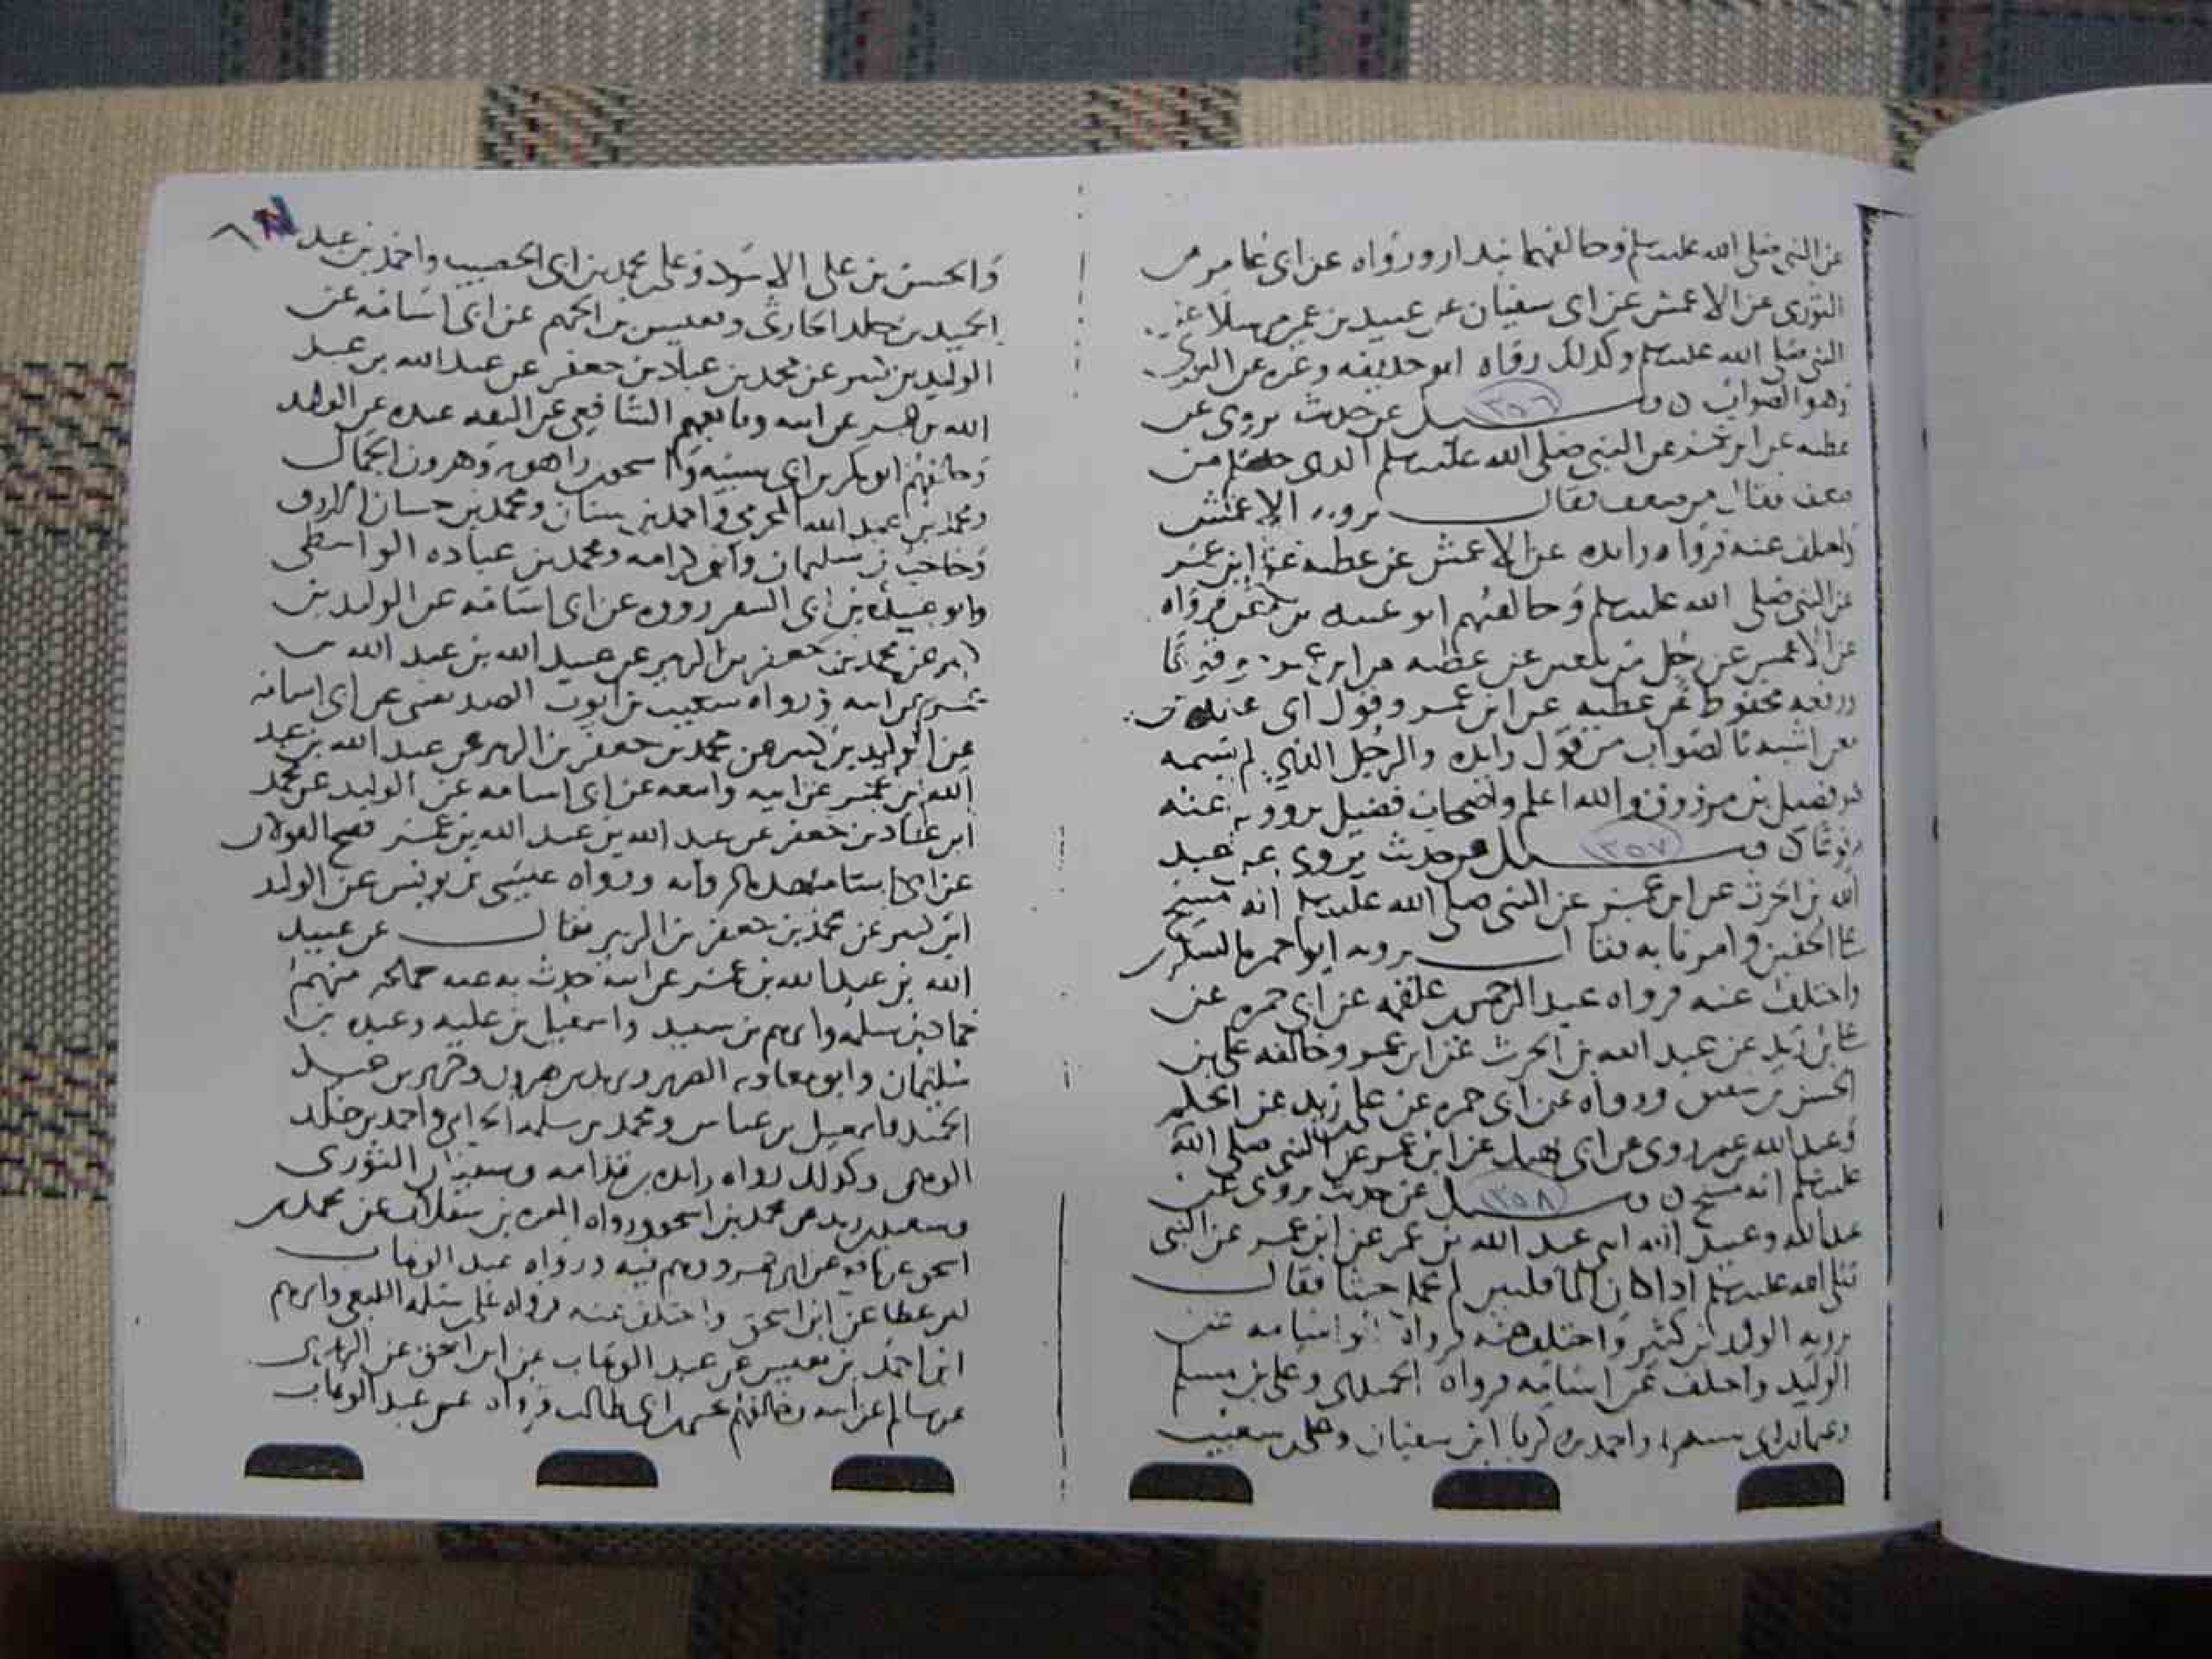 عن النبي صلى الله عليه وسلم وخالفهما بندار ورواه عن ابي عامر عن
الثوري عن الاعمش عن ابي سفيان عن عبيد بن عمير مرسلا عن
النبي صلى الله عليه وسلم وكذلك رواه ابو حذيفه وغيره عن الثوري
وهو الصواب ن وسئل ٣٥٦ عن حديث يروى عن
عطيه عن ابن عمر عن النبي صلى الله عليه وسلم الذي خلقكم من
ضعف فقال من ضعف فقال يرويه الاعمش
واختلف عنه فرواه زايده عن الاعمش عن عطيه عن ابن عمر
عن النبي صلى الله عليه وسلم وخالفهم ابو عبيده بن معن فرواه
عن الاعمش عن رجل عن عطيه عن ابن عمر
ورفعه محفوظ عن عطيه عن ابن عمر وقول ابي عبيده بن
معن اشبه بالصواب من قول زايده والرجل الذي لم يسمه
هو فضيل بن مرزوق والله اعلم واصحاب فضيل يروونه عنه
مرفوعا ن وسئل ٣٥٧ عن حديث يروى عن عبد
الله بن الحرث عن ابن عمر عن النبي صلى الله عليه وسلم انه مسح
على الخفين وامرنا به فقال يرويه ابو حمزه السكري
واختلف عنه فرواه عبد الرحمن بن علقمه عن ابي حمزه عن
علي بن زيد عن عبد الله بن الحرث عن ابن عمر وخالفه علي بن
الحسن بن شقيق ورواه عن ابي حمزه عن علي بن زيد عن الحكم
وعبد الله بن عمير روى عن ابي عن ابن عمر عن النبي صلى الله
عليه وسلم انه مسح ن وسئل ٣٥٨ عن حديث يروى عن
عبد الله وعبيد الله ابني عبد الله بن عمر عن ابن عمر عن النبي
صلى الله عليه وسلم اذا كان الما قلتين لم يحمل خبثا فقال
يرويه الوليد بن كثير واختلف عنه فرواه ابو اسامه عن
الوليد واختلف عن ابي اسامه فرواه الحميدي وعلي بن مسلم
وعثمان بن ابي شيبه واحمد بن زكريا ابن سفيان وعلي بن شعيب
والحسين بن علي الاسود وعلي بن محمد بن ابي الخصيب واحمد بن عبد
الحميد بن خلد الحارثي ويعيش بن الجهم عن ابي اسامه عن
الوليد بن كثير عن محمد بن عباد بن جعفر عن عبد الله بن عبد
الله بن عمر عن ابيه وتابعهم الشافعي عن الثقه عنده عن الوليد
وخالفهم ابو بكر بن ابي شيبه واسحق بن راهويه وهرون الحمال
ومحمد بن عبد الله المخرمي واحمد بن سنان ومحمد بن حسان الازرق
وحاجب بن سليمان وابو كرامه ومحمد بن عباده الواسطي
وابو عبيده بن ابي السفر رووه عن ابي اسامه عن الوليد بن
كثير عن محمد بن جعفر بن الزبير عن عبيد الله بن عبد الله بن
عمر عن ابيه ورواه شعيب بن ايوب الصريفيني عن ابي اسامه
عن الوليد بن كثير عن محمد بن جعفر بن الزبير عن عبد الله بن عبد
الله بن عمر عن ابيه واتبعه عن ابي اسامه عن الوليد عن محمد
ابن عباد بن جعفر عن عبد الله بن عبد الله بن عمر فصح القولان
عن ابي اسامه ورواه عيسى بن يونس عن الوليد
ابن كثير عن محمد بن جعفر بن الزبير فقال عن عبيد
الله بن عبد الله بن عمر عن ابيه حدث به عنه جماعه منهم
حماد بن سلمه وابرهيم بن سعد واسمعيل بن عليه وعبده بن
سليمان وابو معاويه الضرير ويزيد بن هرون وجرير بن عبد
الحميد واسمعيل بن عياش ومحمد بن سلمه الحراني واحمد بن خلد
الوهبي وكذلك رواه زايده بن قدامه وسفيان الثوري
وسعيد بن زيد عن محمد بن اسحق ورواه المغيره بن سقلاب عن محمد بن
اسحق عن نافع عن ابن عمر ووهم فيه ورواه عبد الوهاب
ابن عطا عن ابن اسحق واختلف عنه فرواه علي بن سلمه اللبقي وابرهيم
ابن احمد بن يعيش عن عبد الوهاب عن ابن اسحق عن الزهري
عن سالم عن ابيه وخالفهم يحيى بن ابي طالب فرواه عن عبد الوهاب